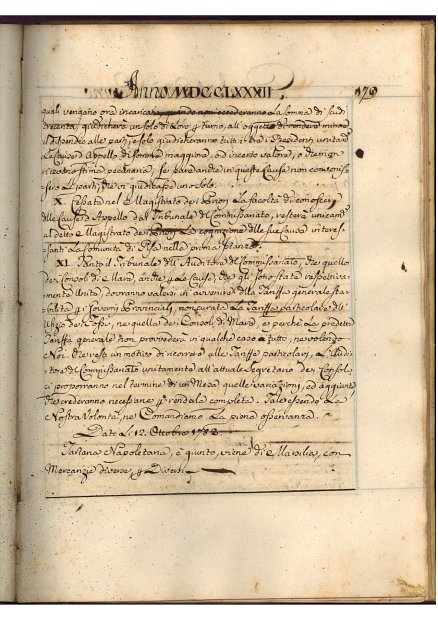 Anno MDCCLXXXII.
179
quali vengano ora incaricati, quando non eccederanno La somma di scudi
trecenta, giudicherà un solo di Loro p turno, all'oggetto di rendere minore
il dispendio alle parti, e solo giudicheranno tutti
Le Cause d'appello di somma maggiore, o d'incerto valore, o d'emergenti
se pure anche in queste Cause non convenis-
sero Le parti, che vi giudicasse un solo.
X. Cessato nel Magistrato dei la facoltà di conoscere
delle Cause d'Appello dal Tribunale del Commissariato, resterà unicamte
al detto Magistrato dei La cognizione delle sue Cause interes-
santi La Comunità di Pisa nella prima Istanza.
XI. Tanto il Tribunale dell'Auditore del Commissariato, che quello
dei Consoli di Mare, anche p Le Cause, che gli sono state respettiva-
mente Unite, dovranno valersi in avvenire della Tariffa generale sta-
bilita p i Governi Provinciali, non curata La Tariffa particolare dell'
Ufizio dei Fossi, ne quella dei Consoli di Mare, e perchè La predetta
Tariffa generale non provvedere in qualche caso a tutto, ne volendo
Noi, che resti un motivo di ricorrere alle Tariffe particolari, L'Audi-
tore del Commissariato unitamente all'attuale Segretario dei Consoli,
ci proporranno nel termine di un Mese quelle variazioni, ed aggiunte
che crederanno necessarie p renderla completa. Tale essendo La
Nostra Volontà, ne Comandiamo La piena osservanza.
Dato Li 12. Ottobre 1782
Tartana Napoletana, è giunto, viene di Marsilia, con
Mercanzie diverse, p Diversi.